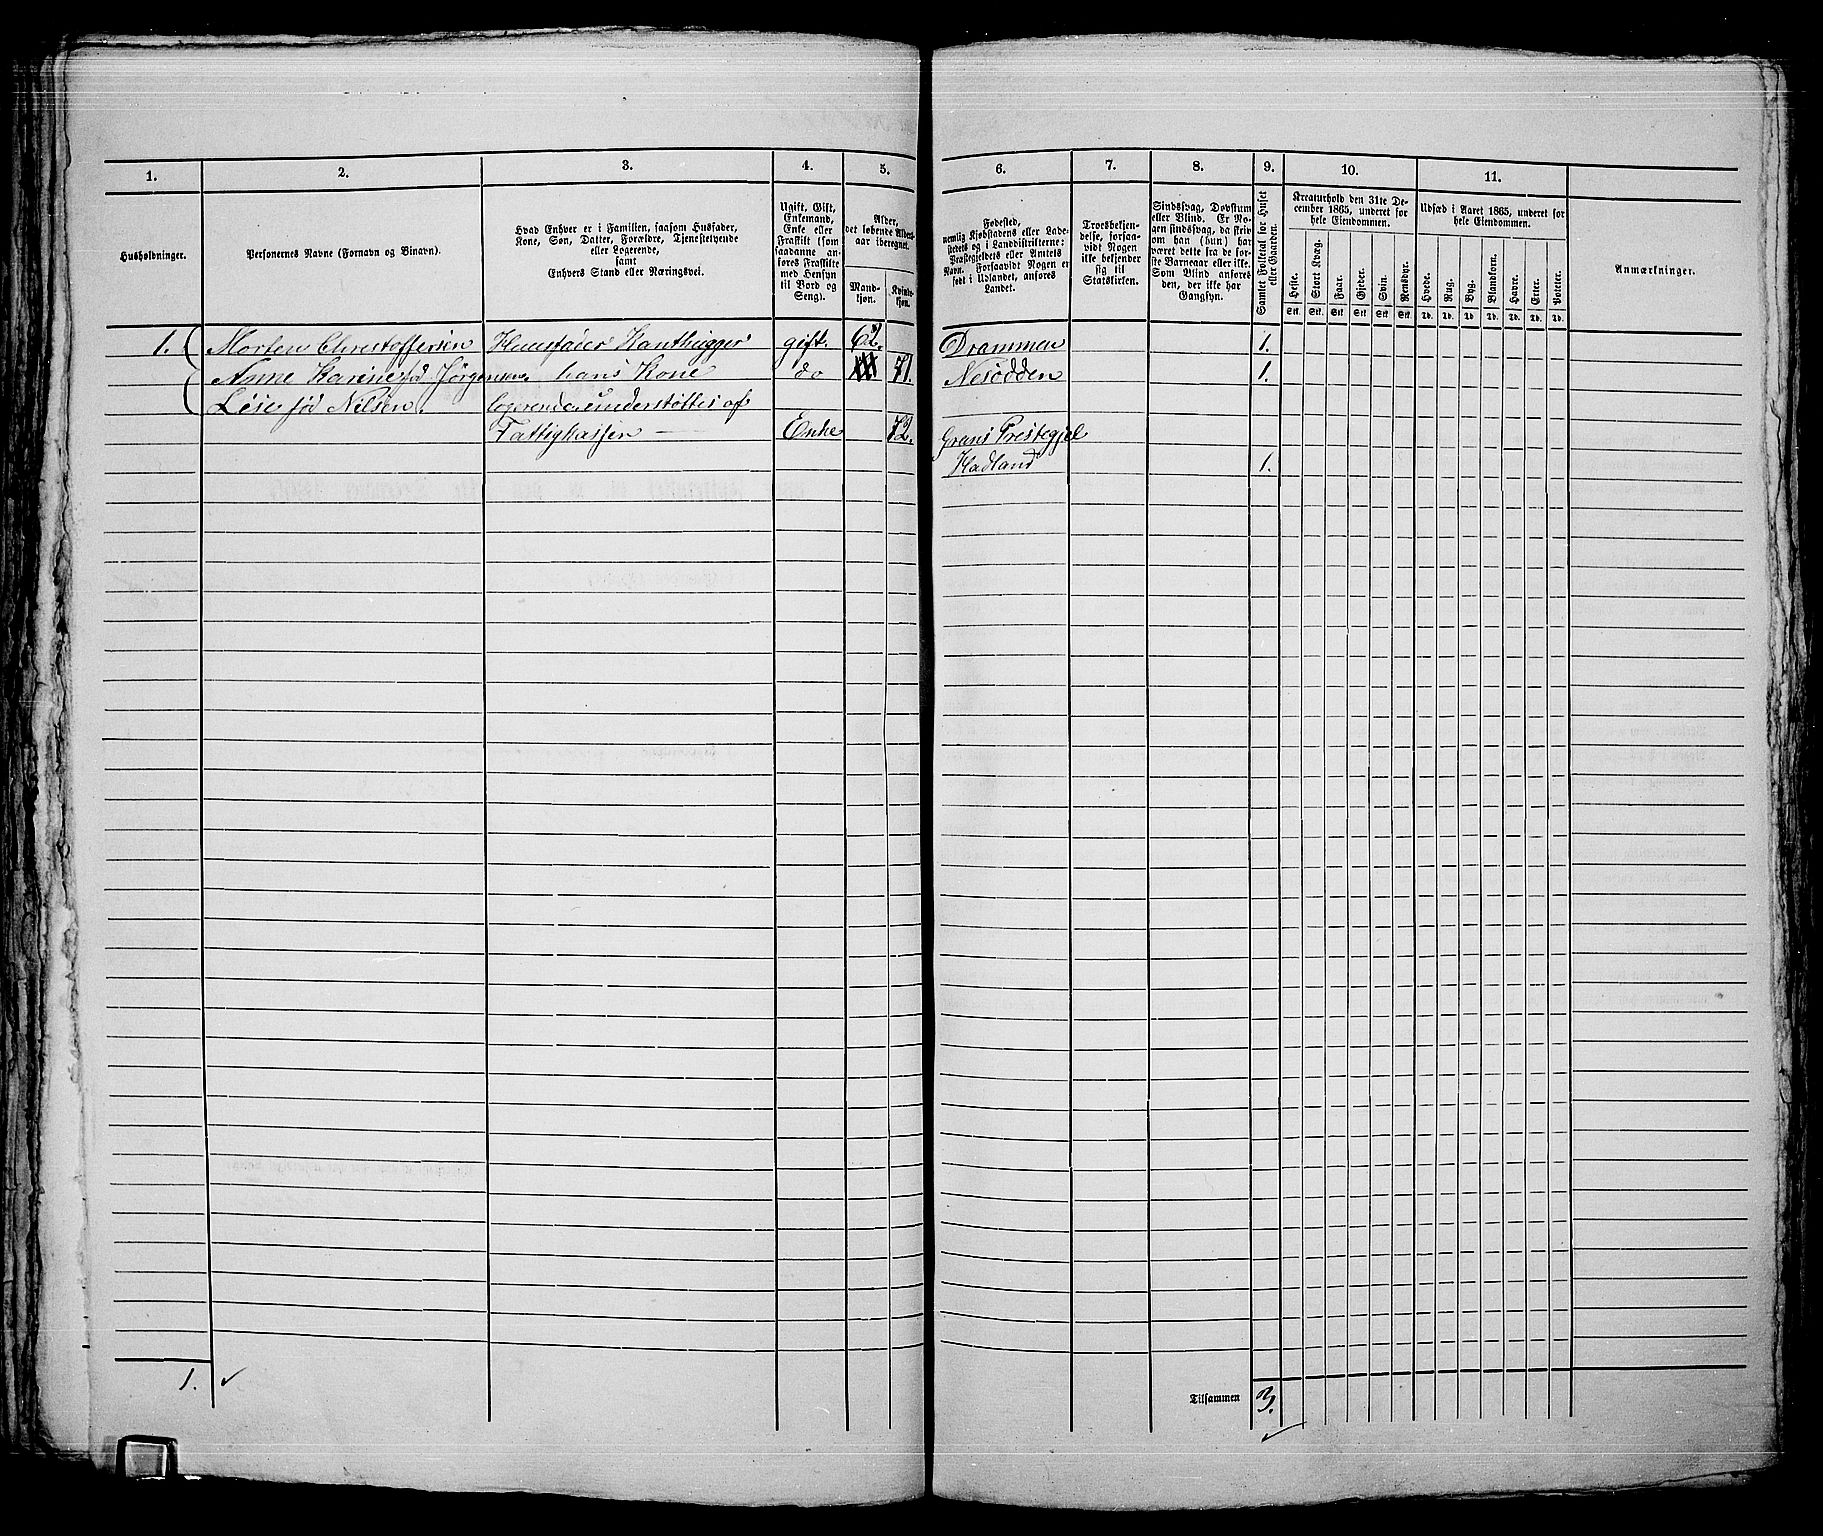 1. 2. 3. 4. 5. 6. 7. 8. 9. 10. 11.
Husholdninger.
Personernes Navne (Fornavn og Binavn).
Hvad Enhver er i Familien, saasom Husfader,
Kone, Søn, Datter, Forældre, Tjenestetyende
eller Logerende,
samt
Enhvers Stand eller Næringsvei.
Ugift, Gift,
Enkemand,
Enke eller
Fraskilt (som
saadanne an-
føres Fraskilte
med Hensyn
til Bord og
Seng).
Alder,
det løbende Alders-
aar iberegnet.
Mand-
kjøn.
Kvinde-
kjøn.
Fødested,
nemlig Kjøbstadens eller Lade-
stedets og i Landdistrikterne:
Præstegjeldets eller Amtets
Navn. Forsaavidt Nogen er
født i Udlandet, anføres
Landet.
Troesbekjen-
delse, forsaa-
vidt Nogen
ikke bekjender
sig til
Statskirken.
Sindssvag, Døvstum
eller Blind. Er No-
gen sindssvag, da skriv
om han (hun) har
været dette fra de før-
ste Barneaar eller ikke.
Som Blind anføres
den, der ikke har
Gangsyn.
Samlet Folketal for Huset
eller Gaarden.
Kreaturhold den 31te De-
cember 1865, underet for
hele Eiendommen.
Heste. Stort Kvæg. Faar. Gjeder. Svin. Rensdyr.
Stk. Stk. Stk. Stk. Stk. Stk.
Udsæd i Aaret 1865, underet for
hele Eiendommen.
Hvede. Rug. Byg. Blandkorn. Havre. Erter. Poteter.
Td. Td. Td. Td. Td. Td. Td.
Anmærkninger.
1. Morten Christoffersen Huusfaier Kanthugger gift. 62. Drammen 1.
Anne Karine fød Jørgensen. hans Kone do 71. Nesodden 1.
Lise fød Nilsen. logerende understøttes af
Fattigkassen — Enke 72. Grans Prestegjel
Hadland 1.
1. ✓
Tilsammen 3.